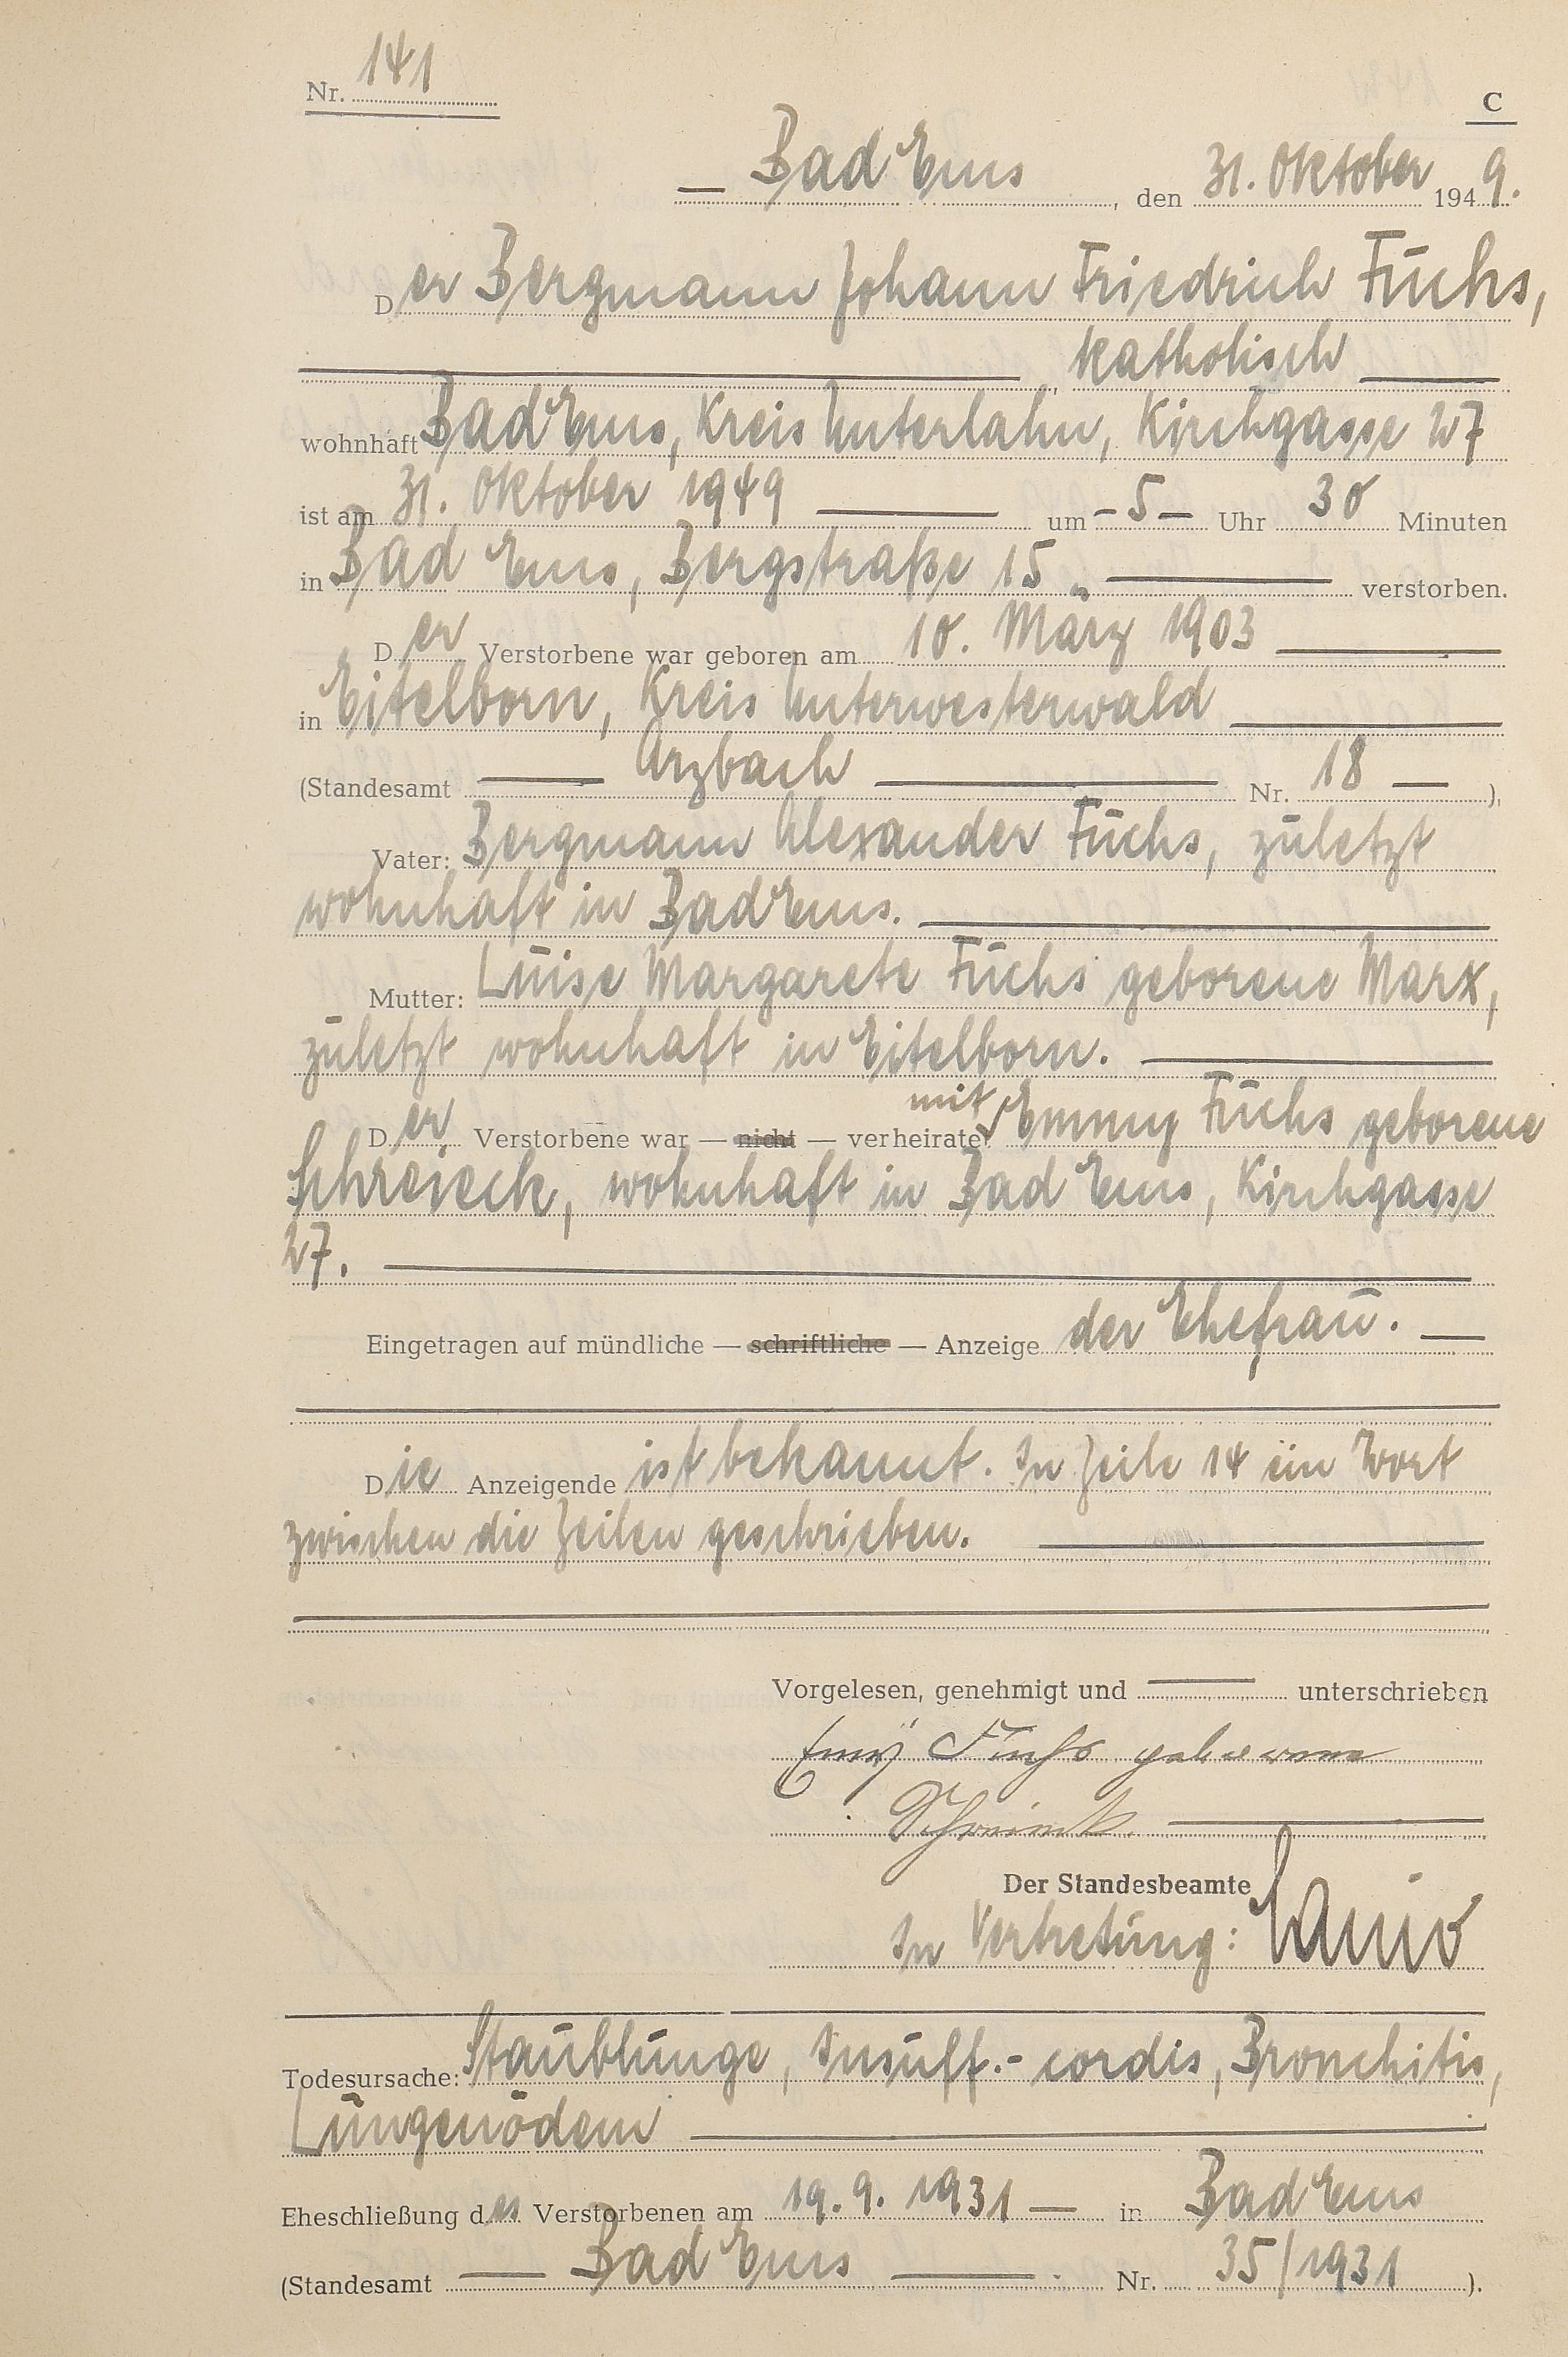 Nr. 141
C
— Bad Ems, den 31. Oktober 1949.
Der Bergmann Johann Friedrich Fuchs,
katholisch
wohnhaft Bad Ems, Kreis Unterlahn, Kirchgasse 27
ist am 31. Oktober 1949 — um - 5 - Uhr 30 Minuten
in Bad Ems, Bergstraße 15 — verstorben.
Der Verstorbene war geboren am 10. März 1903
in Eitelborn, Kreis Unterwesterwald
(Standesamt — Arzbach — Nr. 18 — ),
Vater: Bergmann Alexander Fuchs, zuletzt
wohnhaft in Bad Ems.
Mutter: Luise Margarete Fuchs geborene Marx,
zuletzt wohnhaft in Eitelborn.
mit
Der Verstorbene war — nicht — verheiratet Emmy Fuchs geborene
Schreieck, wohnhaft in Bad Ems, Kirchgasse
27.
Eingetragen auf mündliche — schriftliche — Anzeige der Ehefrau. —
Die Anzeigende ist bekannt. In Zeile 14 ein Wort
zwischen die Zeilen geschrieben.
Vorgelesen, genehmigt und — unterschrieben
Emmy Fuchs geborene
Der Standesbeamte
In Vertretung:
Todesursache: Staublunge, Insuff.- cordis, Bronchitis,
Lungenödem
Eheschließung des Verstorbenen am 19. 9. 1931 — in Bad Ems
(Standesamt — Bad Ems — Nr. 35/1931 ).